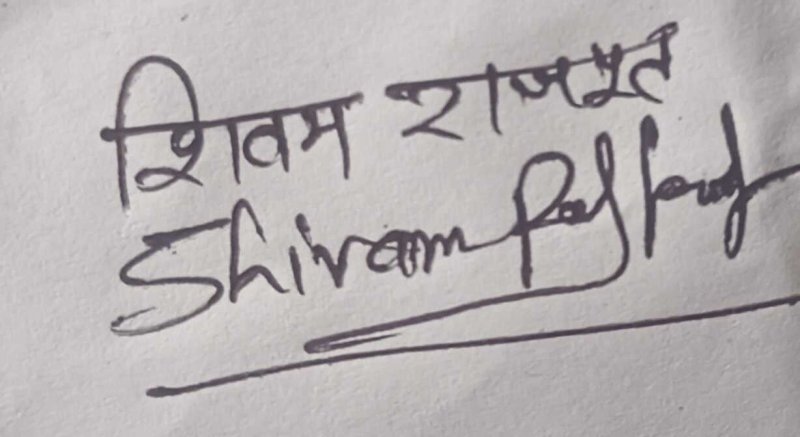 शिवम राजपूत
Shivam Rajput